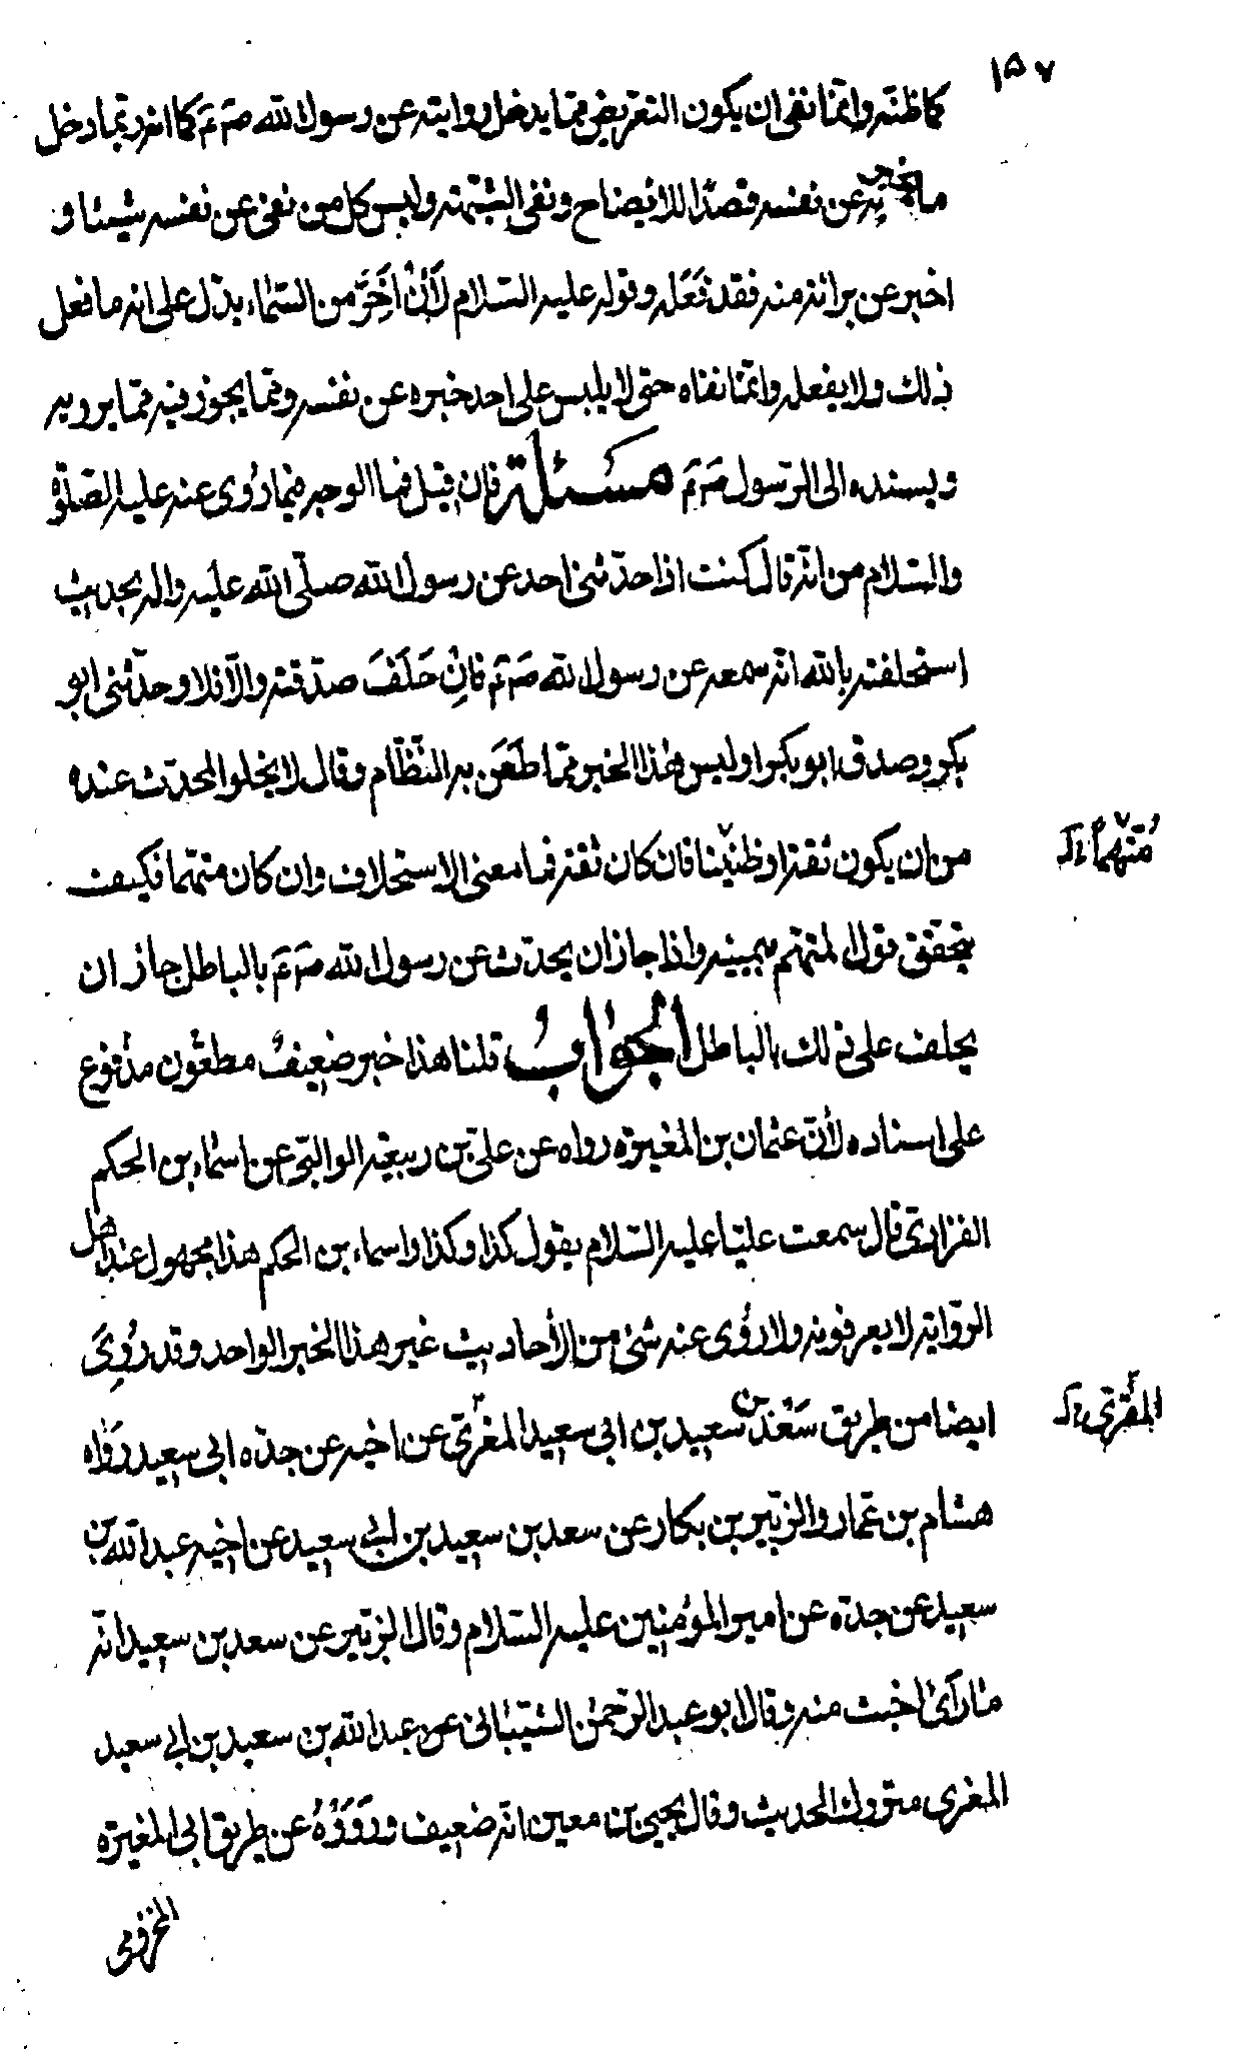 ١٥٧
كما ظنّه وانّما نفى ان يكون التعريض ممّا يدخل روايته عن رسول الله صَ عَ كما انه ربّما دخل
ما يخبر به عن نفسه قصدًا للايضاح ونفى الشبّهة وليس كل من نفى عن نفسه شيئا و
اخبر عن برائته منه فقد فَعَله وقوله عليه السّلام لَأَنْ اَخِرَّ من السّماء يدّل على انه ما فعل
ذلك ولا يفعله وانّما نفاه حتى لا يلبس على احد خبره عن نفسه وممّا يجوز فيه ممّا يرويه
ويسنده الى الرّسول صَ عَ مسئلة فان قيل فما الوجه فيما رُوى عنه عليه الصّلوة
والسّلام من انّه قال كنت اذا حدّثنى احد عن رسول الله صلّى الله عليه واله بحديث
استحلفته بالله انّه سمعه عن رسول الله صَ عَ فانْ حَلَفَ صدّقته والّا فلا وحدّثنى ابو
بكر وصدق ابو بكر اوليس هٰذا الخبر ممّا طَعَن به النّظّام وقال لا يخلوا المحدّث عنده
من ان يكون ثقة او ظنينًا فان كان ثقة فما معنى الاستحلاف وان كان متهّما فكيف
مُتّهمًا
يتحقق قول المتهّم بيمينه واذا جاز ان يحدّث عن رسول الله صَ عَ بالباطل جاز ان
يحلف على ذلك بالباطل الجوابُ قلنا هذا خبر ضعيفٌ مطعُون مدفوع
على اسناده لأنّ عثمان بن المغيرة رواه عن علىّ بن ربيعة الوالبىّ عن اسماء بن الحكم
الفزارىّ قال سمعت عليّا عليه السّلام يقول كذا وكذا واسماء بن الحكم هذا مجهول عند اهل
الرّواية لا يعرفونه ولا رُوى عنه شئ من الأحاديث غير هذا الخبر الواحد وقد رُوِىَ
ايضا من طريق سَعْد بن سعيد بن ابى سعيد المغرّىّ عن اخيه عن جدّه ابى سعيد روَاه
المقُرّى
هشام بن عمّار والزبّير بن بكار عن سعد بن سعيد بن ابى سعيد عن اخيه عبد الله بن
سعيد عن جدّه عن امير المؤمنين عليه السّلام وقال الزبّير عن سعد بن سعيد انّه
ما رَآى اخبث منه وقال ابو عبد الرّحمٰن الشّيبانى عن عبد الله بن سعيد بن ابى سعيد
المغرى متروك الحديث وقال يحيى بن معين انّه ضعيف ورَوَوْهُ عن طريق ابى المغيرة
المخزومى